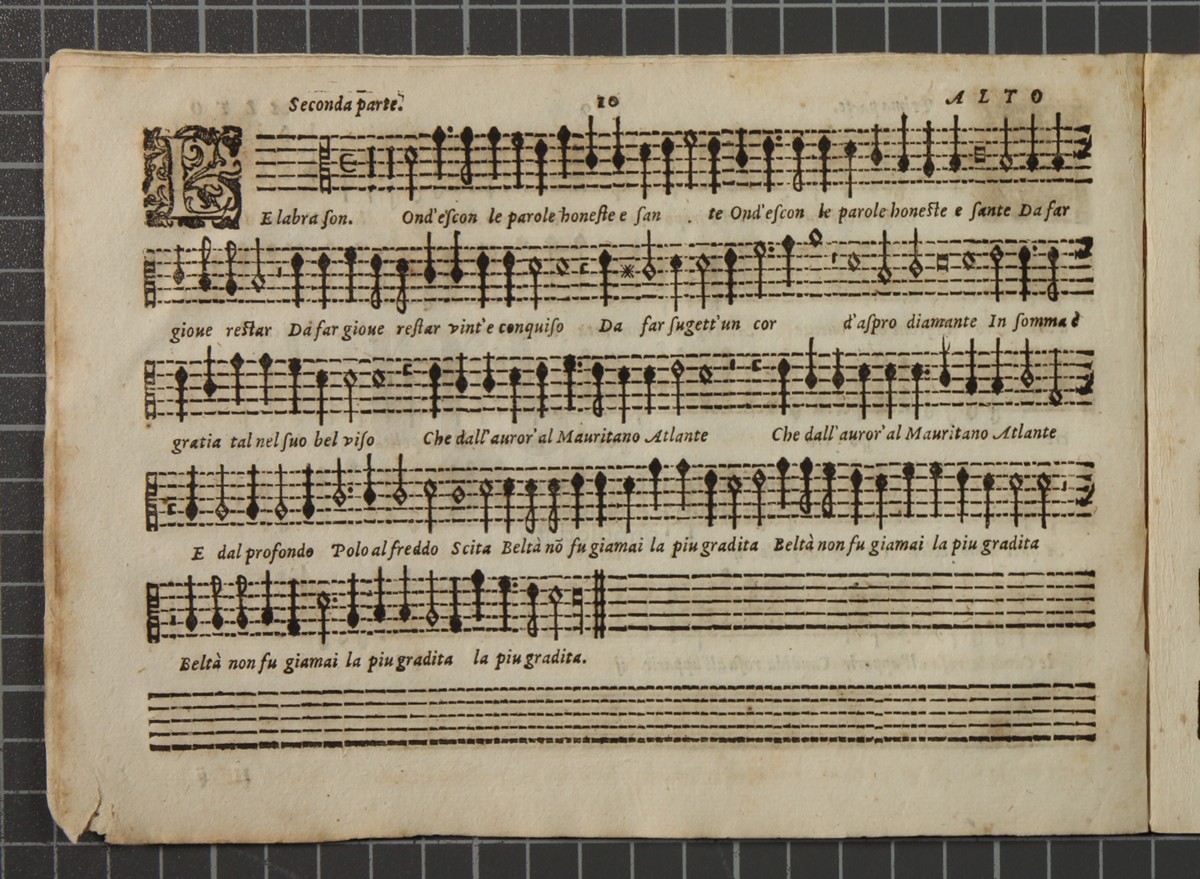 Seconda parte. 10 ALTO
LE labra ſon. Ond'eſcon le parole honeſte e ſan . te Ond'eſcon le parole honeſte e ſante Da far
gioue reſtar Da far gioue reſtar vint'e conquiſo Da far ſugett'un cor d'aſpro diamante In ſomma è
gratia tal nel ſuo bel viſo Che dall'auror'al Mauritano Atlante Che dall'auror'al Mauritano Atlante
E dal profondo Polo al freddo Scita Beltà nō fu giamai la piu gradita Beltà non fu giamai la piu gradita
Beltà non fu giamai la piu gradita la piu gradita.